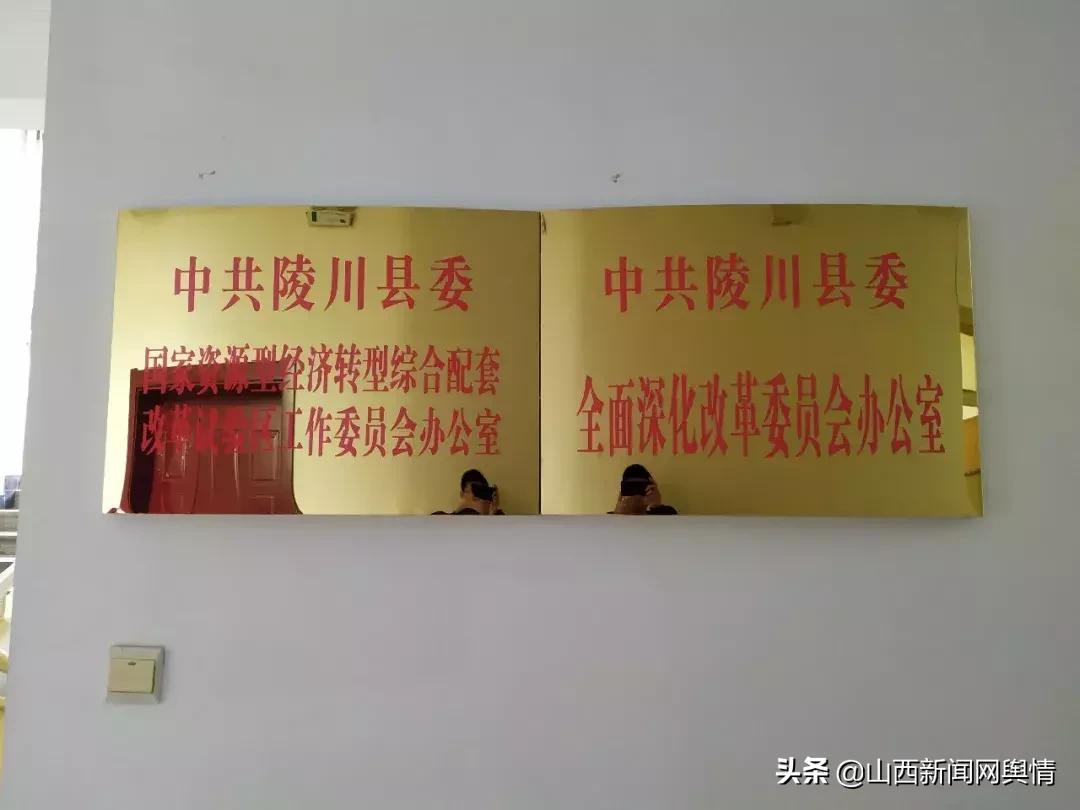 中共陵川县委
国家资源型经济转型综合配套
改革试验区工作委员会办公室
中共陵川县委
全面深化改革委员会办公室
头条 @山西新闻网舆情